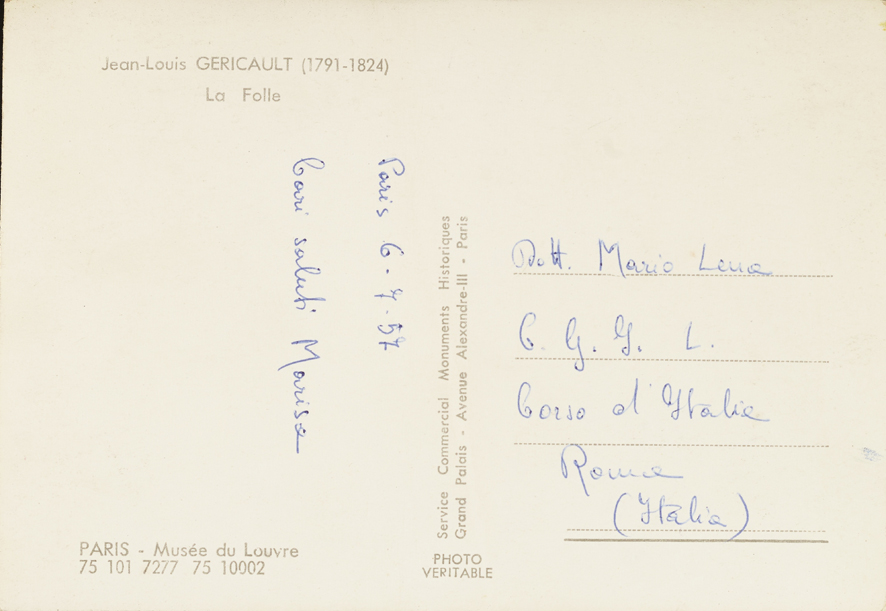 Jean-Louis GERICAULT (1791-1824)
La Folle
Paris 6-7-57
Cari saluti Marisa
PARIS - Musée du Louvre
75 101 7277 75 10002
Service Commercial Monuments Historiques
Grand Palais - Avenue Alexandre-III - Paris
PHOTO
VERITABLE
Dott. Mario Lena
C. G. I. L.
Corso d'Italia
Roma
(Italia)